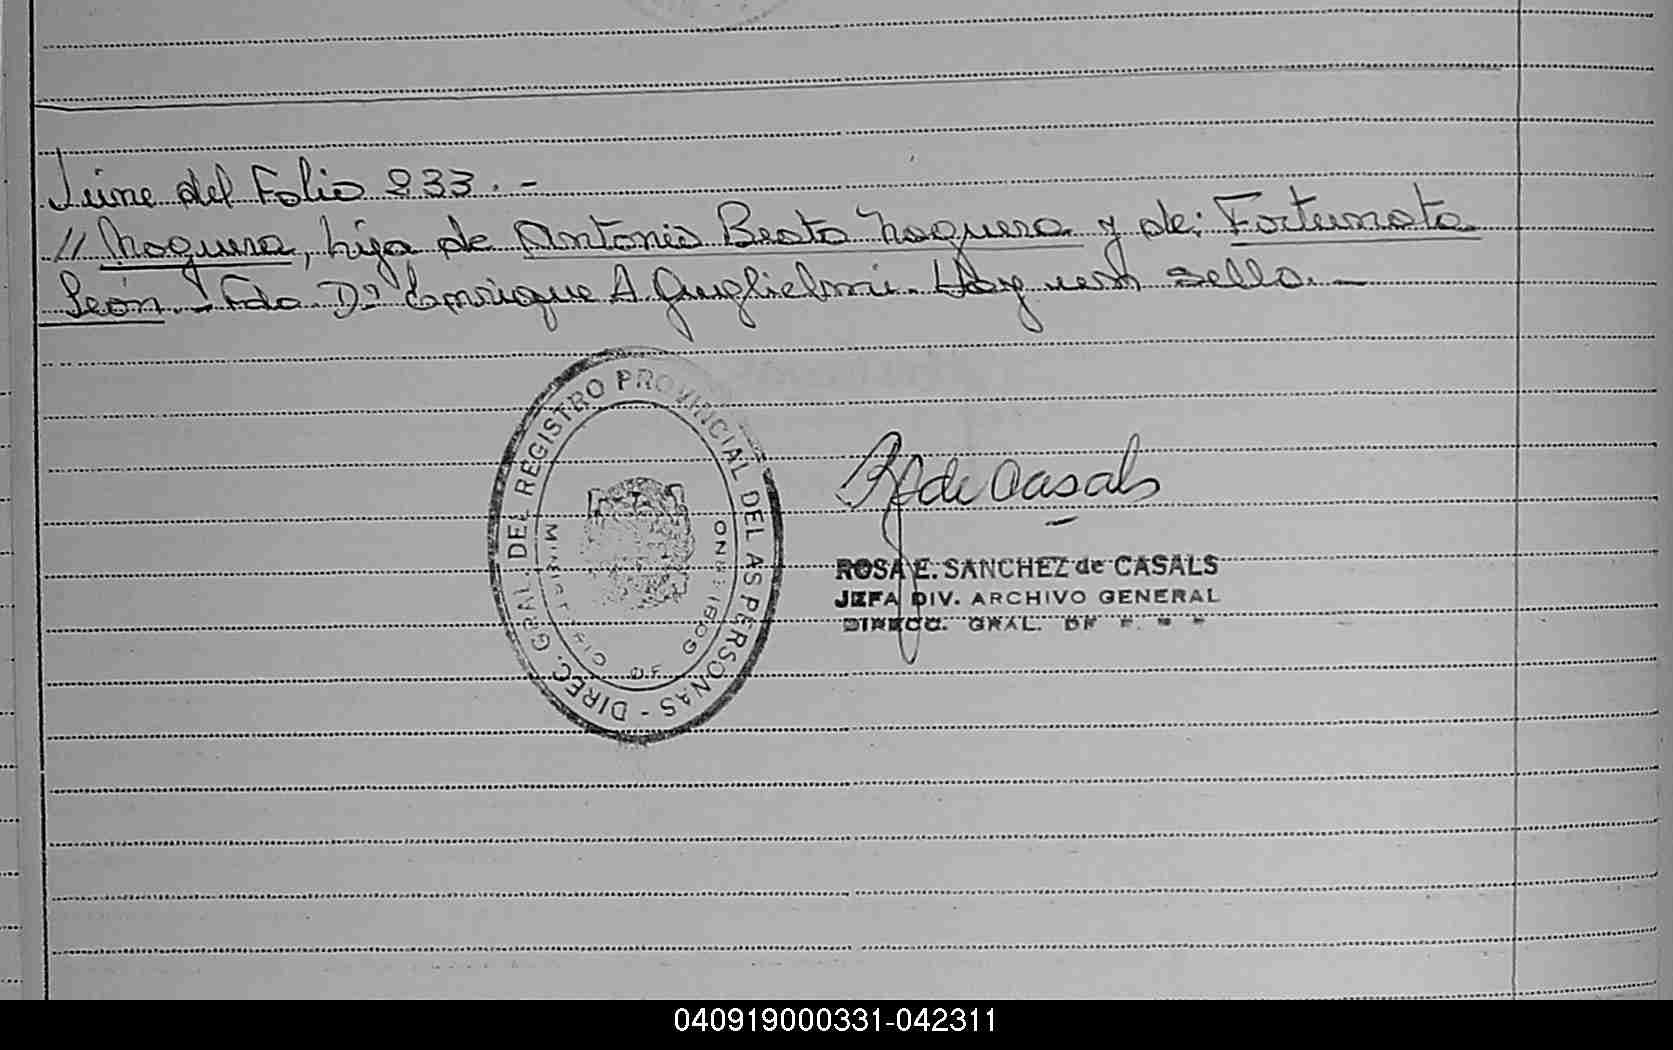 Viene del Folio 233.-
// Noguera, hija de Antonio Beato Noguera y de: Fortunata
León.- Fdo Dº Enrique A Guglielmi. Hay un sello.-
DIREC. GRAL. DEL REGISTRO PROVINCIAL DEL AS PERSONAS -
MINISTERIO DE GOBIERNO
R de Casals
ROSA E. SANCHEZ de CASALS
JEFA DIV. ARCHIVO GENERAL
DIRECC. GRAL. DE
040919000331-042311